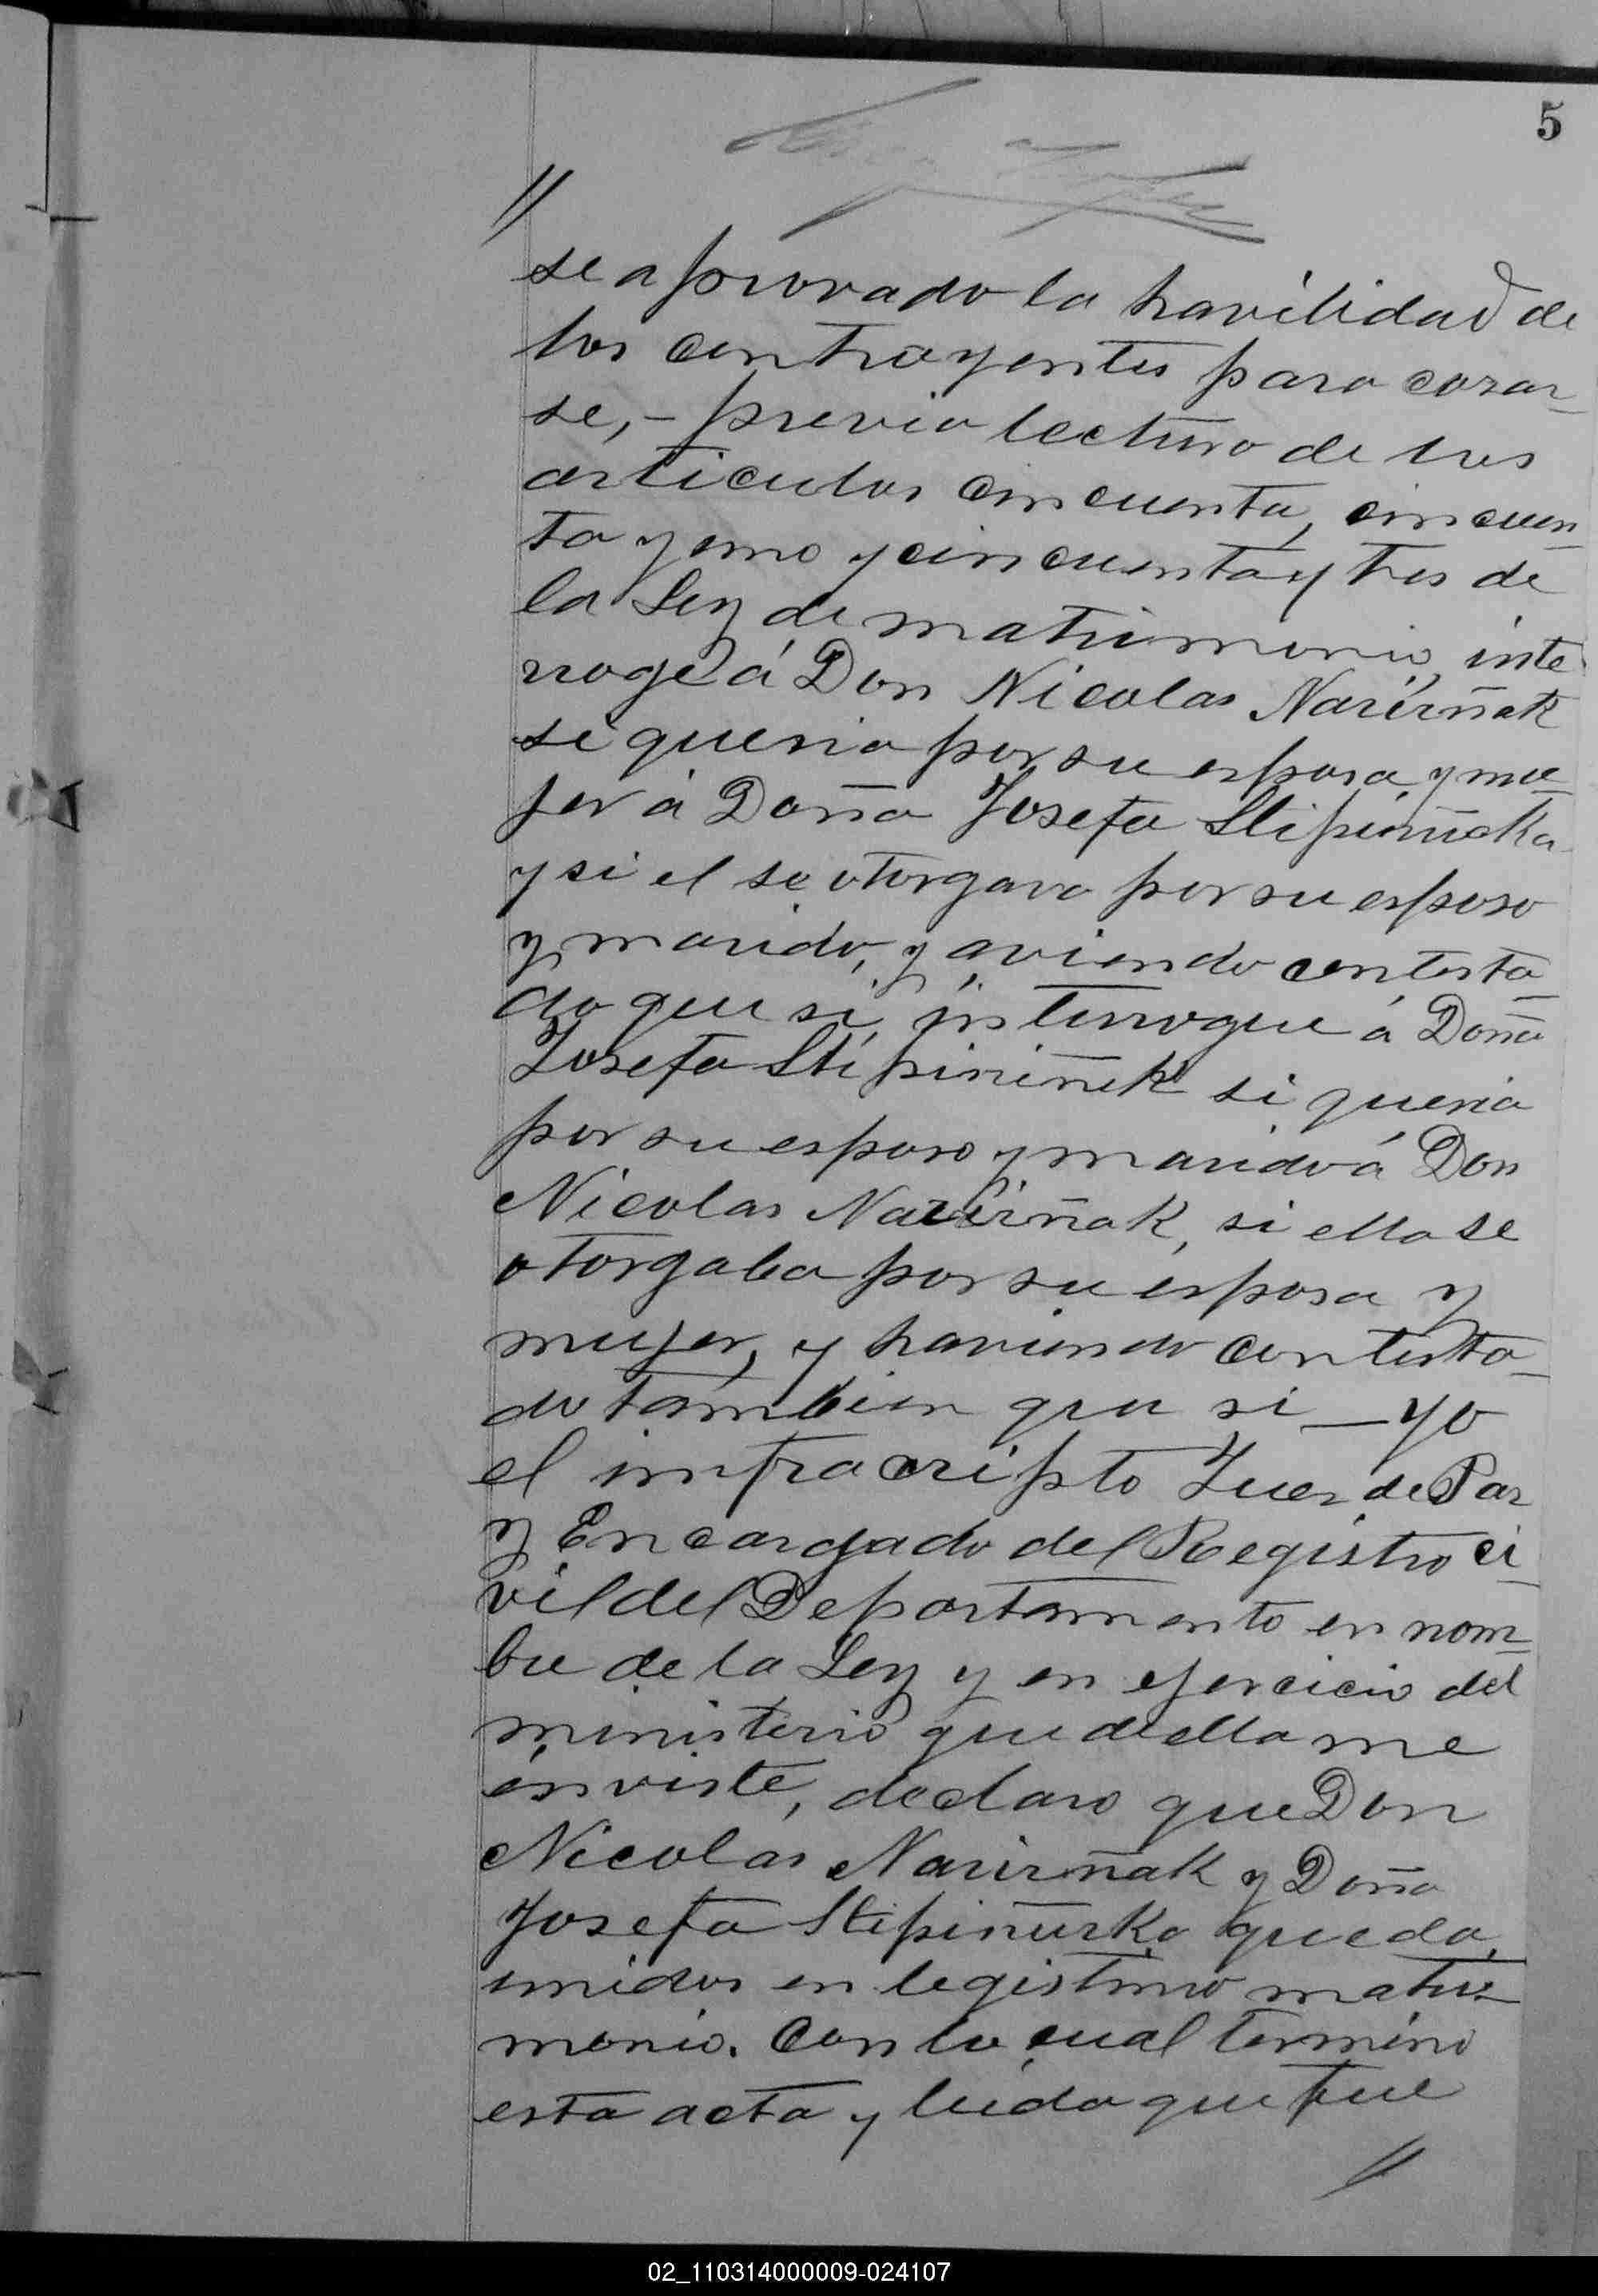 5
//
se aprovado la havilidad de
los contrayentes para cazar-
se,- previa lectura de los
articulos cincuenta, cincuen-
ta y uno y cincuenta y tres de
la Ley de matrimonio, inte
rrogé á Don Nicolas Nazirñak
si queria por su esposa y mu-
jer á Doña Josefa Stipiñuska
y si el se otorgava por su esposo
y marido, y aviendo contesta-
do que si, interrogue á Doña
Josefa Stipiniñek si queria
por su esposo y marido á Don
Nicolas Nazirñak, si ella se
otorgaba por su esposa y
mujer, y haviendo contesta-
do tambien que si — yo
el infracripto Juez de Paz
y Encargado del Registro ci-
vil del Departamento en nom-
bre de la Ley y en ejercicio del
ministerio que de ella me
inviste, declaro que Don
Nicolas Nazirñak y Doña
Josefa Stipiñuska queda
unidos en legistimo matri-
monio. Con lo cual termino
esta acta y leida que fue
//
02_110314000009-024107